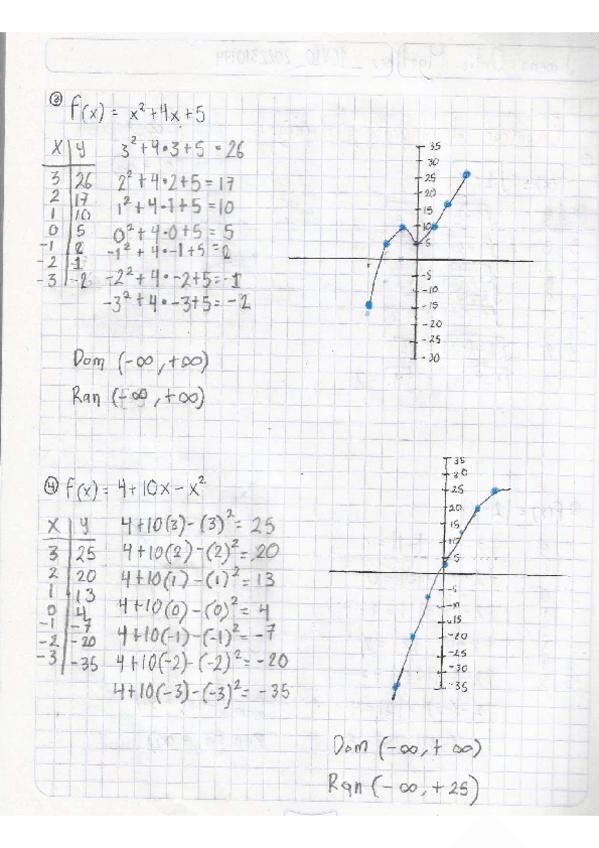 ③ f(x) = x² + 4x + 5
x | y
3 | 26
2 | 17
1 | 10
0 | 5
-1 | 2
-2 | 1
-3 | -2
3² + 4·3 + 5 = 26
2² + 4·2 + 5 = 17
1² + 4·1 + 5 = 10
0² + 4·0 + 5 = 5
-1² + 4·-1 + 5 = 2
-2² + 4·-2 + 5 = -1
-3² + 4·-3 + 5 = -2
35
30
25
20
15
10
5
-5
-10
-15
-20
-25
-30
Dom (-∞, +∞)
Ran (-∞, +∞)
④ f(x) = 4 + 10x - x²
x | y
3 | 25
2 | 20
1 | 13
0 | 4
-1 | -7
-2 | -20
-3 | -35
4 + 10(3) - (3)² = 25
4 + 10(2) - (2)² = 20
4 + 10(1) - (1)² = 13
4 + 10(0) - (0)² = 4
4 + 10(-1) - (-1)² = -7
4 + 10(-2) - (-2)² = -20
4 + 10(-3) - (-3)² = -35
35
30
25
20
15
10
5
-5
-10
-15
-20
-25
-30
-35
Dom (-∞, +∞)
Ran (-∞, +25)